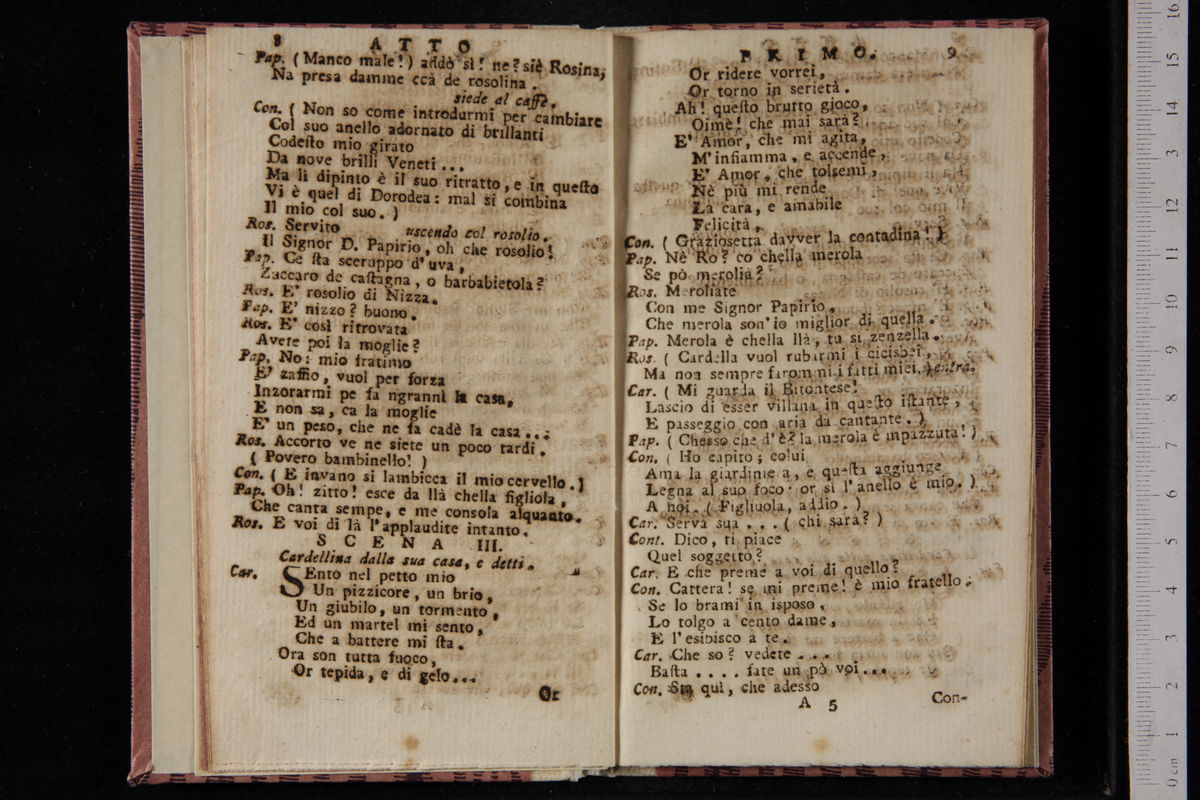 8 ATTO
Pap. (Manco male!) addò sì! ne? siè Rosina,
Na presa damme ccà de rosolina.
siede al caffè.
Con. ( Non so come introdurmi per cambiare
Col suo anello adornato di brillanti
Codeſto mio girato
Da nove brilli Veneti...
Ma lì dipinto è il suo ritratto, e in queſto
Vi è quel di Dorodea: mal si combina
Il mio col suo. )
Ros. Servito uscendo col rosolio.
Il Signor D. Papirio, oh che rosolio!
Pap. Ce ſta sceruppo d'uva,
Zuccaro de caſtagna, o barbabietola?
Ros. E' rosolio di Nizza.
Pap. E' nizzo? buono.
Ros. E' così ritrovata
Avete poi la moglie?
Pap. No: mio fratimo
E' zaffio, vuol per forza
Inzorarmi pe fa ngrannì la casa,
E non sa, ca la moglie
E' un peso, che ne fa cadè la casa...
Ros. Accorto ve ne siete un poco tardi.
( Povero bambinello! )
Con. ( E invano si lambicca il mio cervello.)
Pap. Oh! zitto! esce da llà chella figliola,
Che canta sempe, e me consola alquanto.
Ros. E voi di là l'applaudite intanto.
SCENA III.
Cardellina dalla sua casa, e detti.
Car. SEnto nel petto mio
Un pizzicore, un brio,
Un giubilo, un tormento,
Ed un martel mi sento,
Che a battere mi ſta.
Ora son tutta fuoco,
Or tepida, e di gelo...
Or
PRIMO. 9
Or ridere vorrei,
Or torno in serietà.
Ah! queſto brutto gioco,
Oimè! che mai sarà?
E' Amor, che mi agita,
M'infiamma, e accende,
E' Amor, che tolsemi,
Nè più mi rende
La cara, e amabile
Felicità.
Con. ( Graziosetta davver la contadina! )
Pap. Nè Ro? co chella merola
Se pò merolià?
Ros. Meroliate
Con me Signor Papirio,
Che merola son'io miglior di quella.
Pap. Merola è chella llà, tu si zenzella.
Ros. ( Cardella vuol rubarmi i cicisbei,
Ma non sempre farommi i fatti miei.) entra.
Car. ( Mi guarda il Bitontese!
Lascio di esser villana in queſto iſtante,
E passeggio con aria da cantante. )
Pap. ( Chesso che d'è? la merola è mpazzuta! )
Con. ( Ho capito; colui
Ama la giardiniera, e queſta aggiunge
Legna al suo foco: or sì l'anello è mio. )
A noi. ( Figliuola, addio. )
Car. Serva sua ... ( chi sarà? )
Cont. Dico, ti piace
Quel soggetto?
Car. E che preme a voi di quello?
Con. Cattera! se mi preme! è mio fratello.
Se lo brami in isposo,
Lo tolgo a cento dame,
E l'esibisco a te.
Car. Che so? vedete ....
Baſta .... fate un pò voi...
Con. Sta quì, che adesso
A 5 Con-